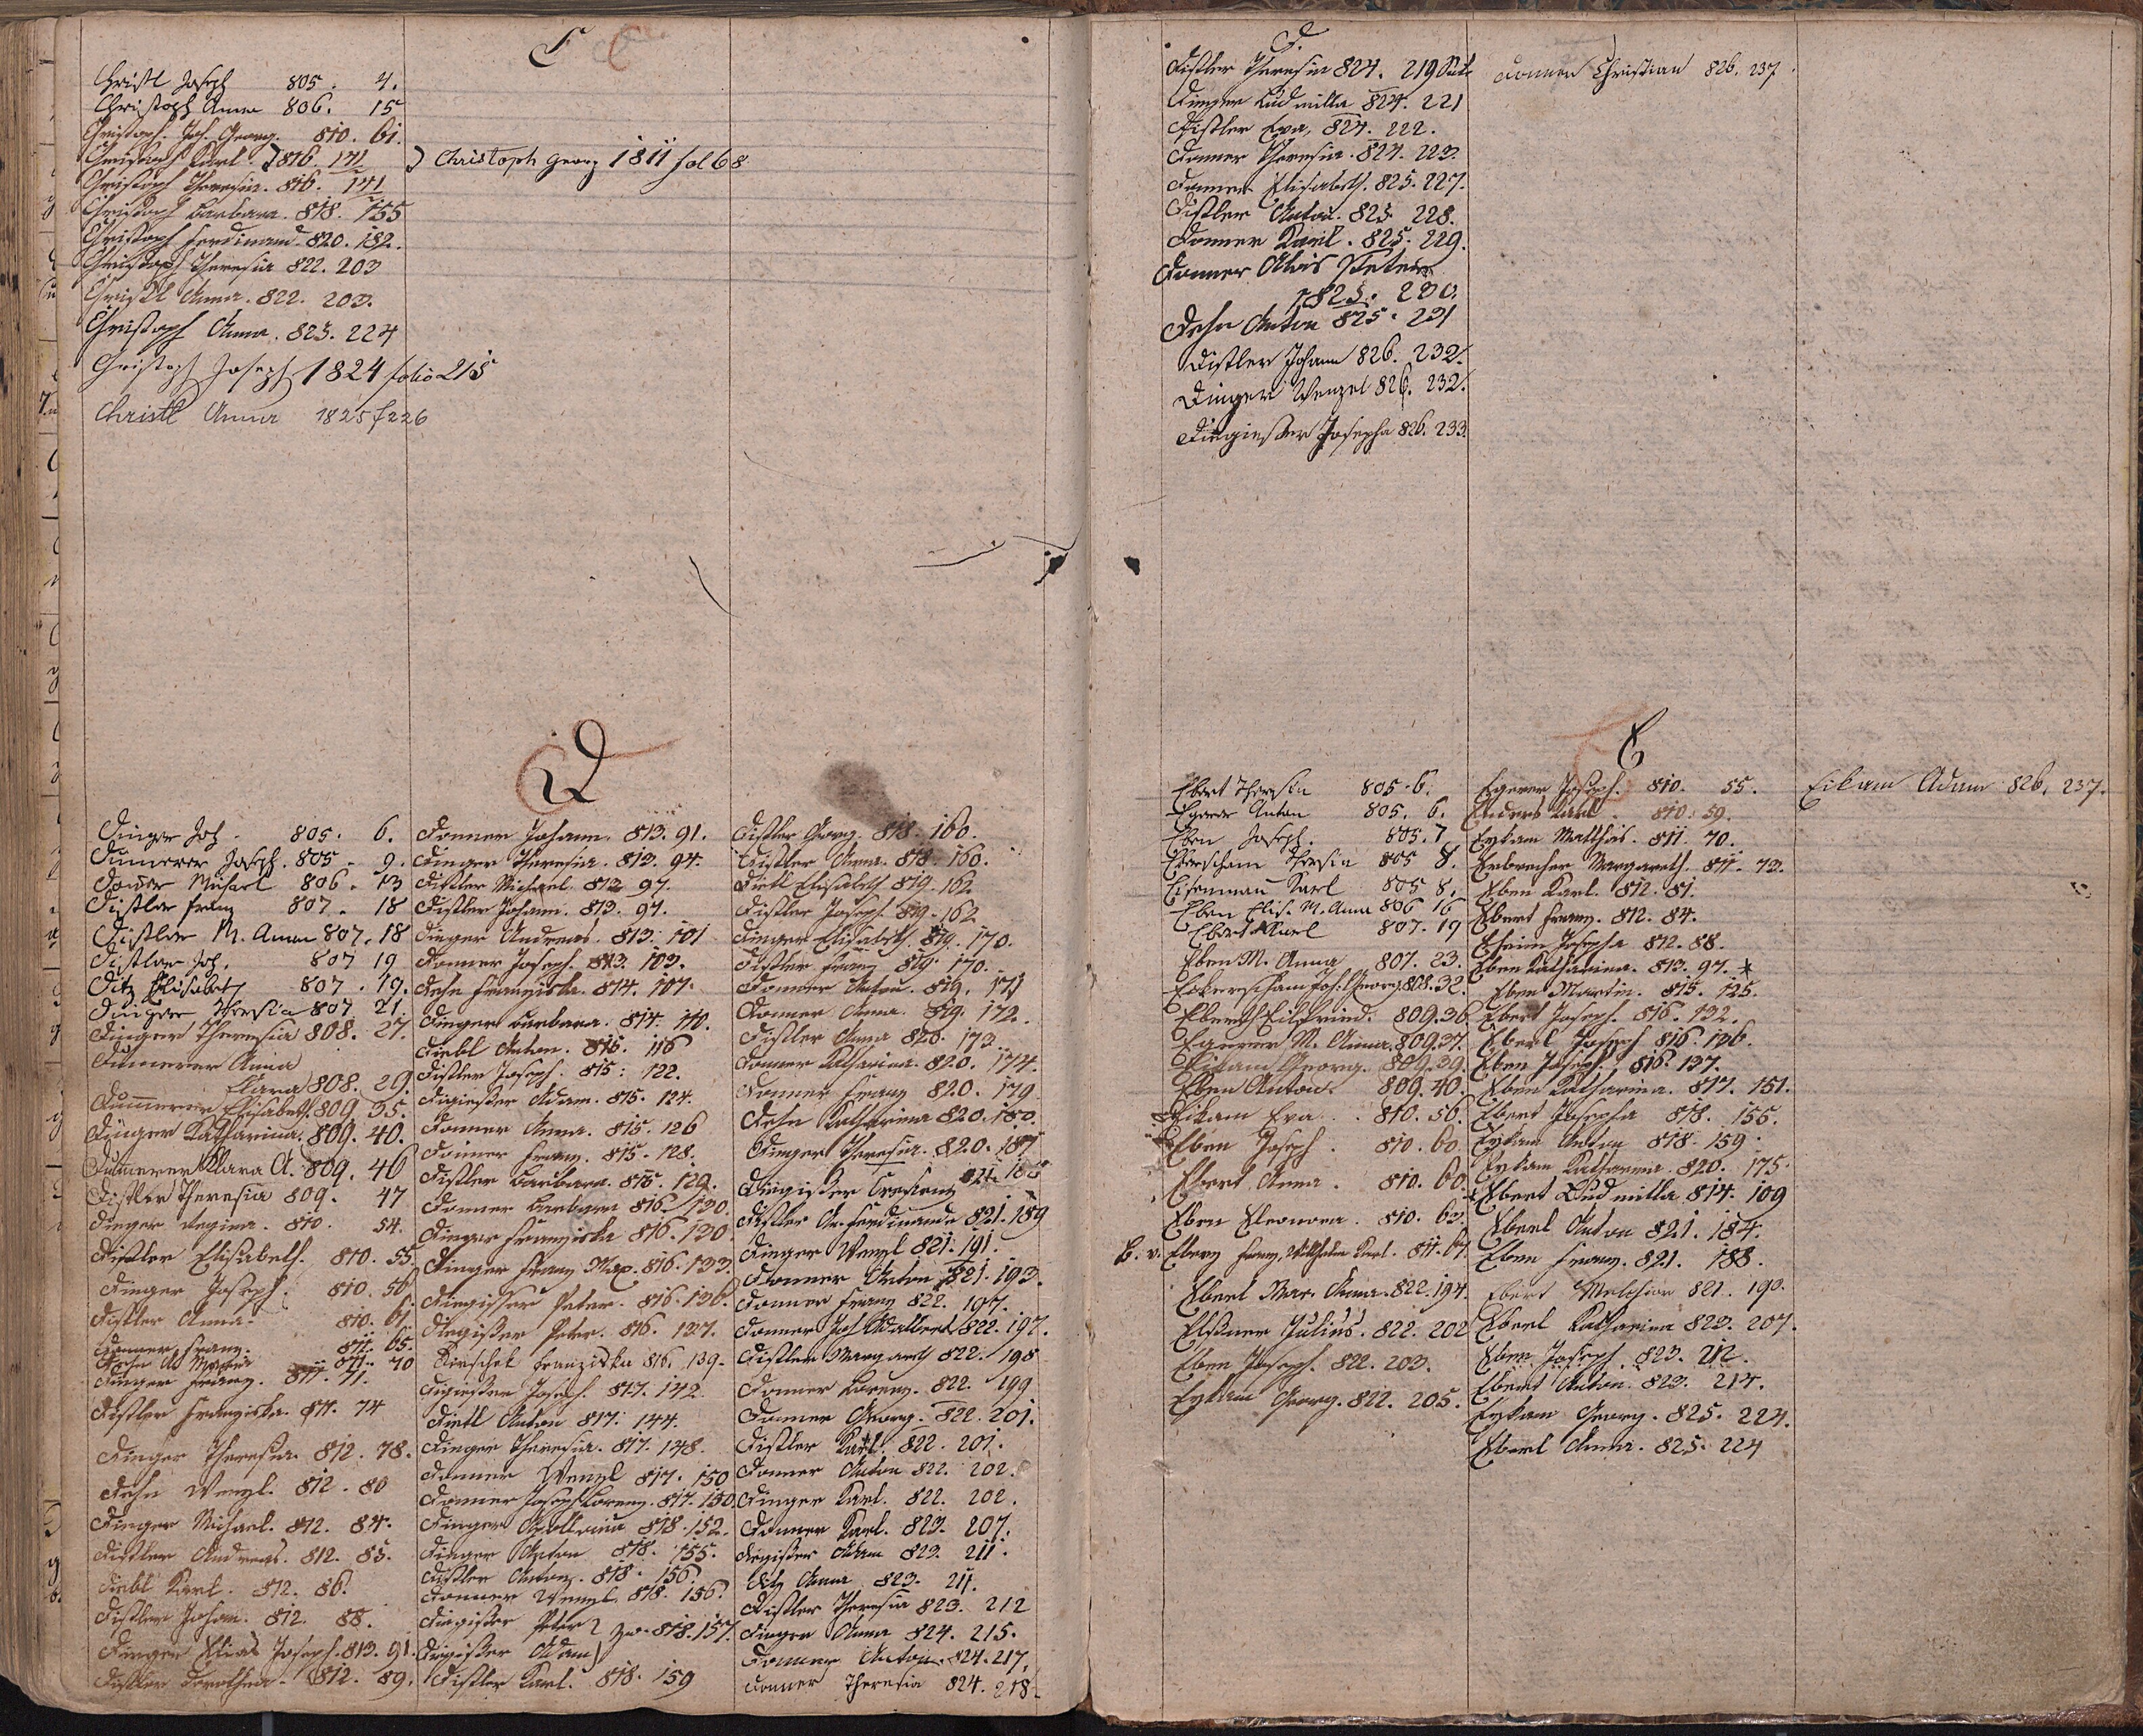 C
Christl Joseph 805. 4.
Christoph Anna 806. 15
Christoph Joh. Georg. 810. 61.
Christoph Karl. 816. 141
Christoph Theresia. 816. 141
Christoph Barbara. 818. 155
Christoph Ferdinand. 820. 182.
Christoph Theresia 822. 203
Christl Anna. 822. 203.
Christoph Anna. 825. 224
Christoph Joseph 1824 folio 215
Christl Anna 1825 f 226
Christoph Georg 1811 fol 68
D
Dinger Joh. 805. 6.
Dumerer Joseph. 805. 9.
Michael 806. 13
Distler Franz 807. 18
Distler M. Anna 807. 18
Distler Joh. 807 19
Ditz Elisabeth 807. 19.
Dinger Theresia 807 21.
Dinger Theresia 808. 27.
Dumerer Anna
Clara 808. 29.
Dumerer Elisabeth 809. 35.
Dinger Katharina. 809. 40.
Dumerer Klara A. 809. 46
Distler Theresia 809. 47
Dinger Regina. 810. 54.
Distler Elisabeth. 810. 55.
Dinger Joseph. 810. 56
Distler Anna. 810. 61.
Donner Franz. 811. 65.
Dehn 811. 70
Dinger Franz. 811. 71.
Distler Franziska. 811. 74
Dinger Theresia. 812. 78.
Dehn Wenzl. 812. 80
Dinger Michael. 812. 84.
Distler Andreas. 812. 85.
Diebl Karl. 812. 86.
Distler Johann. 812. 88.
Dinger Elias Joseph. 813. 91.
Distler Dorothea. 812. 89.
Donner Johann. 813. 91.
Dinger Theresia. 813. 94.
Distler Michael. 813 97.
Distler Johann. 813. 97.
Dinger Andreas. 813. 101
Donner Joseph. 813. 103.
Dehn Franziska. 814. 107.
Dinger Barbara. 814. 110.
Diebl Anton. 815. 116
Distler Joseph. 815. 122.
Digießer Adam. 815. 124.
Donner Anna. 815. 126
Donner Franz. 815. 128.
Distler Barbara. 815. 129.
Donner Barbara 816. 130.
Dinger Franziska 816. 130.
Dinger Franz Max. 816. 133.
Diegißer Peter. 816. 136.
Diegißer Peter. 816. 137.
Franziska 816. 139.
Digießer Joseph. 817. 142.
Dietl Anton 817. 144.
Dinger Theresia. 817. 148.
Donner Wenzl 817. 150
Donner Joseph Lorenz. 817. 150.
Dinger Apollonia 818. 152.
Dinger Anton 818. 155.
Distler Anton. 818. 156.
Donner Wenzl. 818. 156.
Diegißer Peter 818. 157.
Diegißer Adam
Distler Karl. 818. 159
Distler Georg. 818. 160.
Distler Anna. 818. 160.
Dietl Elisabeth 819. 162
Distler Joseph. 819. 162
Dinger Elisabeth. 819. 170.
Distler Franz 819. 170.
Donner Anton. 819. 171
Donner Anna. 819. 172.
Distler Anna 820. 173.
Donner Katharina. 820. 174.
Donner Franz 820. 179
Dehn Katharina 820. 180.
Dinger Theresia. 820. 187
Diegißer
Distler Ferdinanda 821. 189
Dinger Wenzl 821. 191.
Donner Anton 821. 193.
Donner Franz 822. 197.
Donner Joh Adalbert 822. 197.
Distler Margareth 822. 198
Donner Lorenz. 822. 199
Donner Georg. 822. 201.
Distler Karl. 822. 201.
Donner Anton 822. 202.
Dinger Karl. 822. 202.
Donner Karl. 823. 207.
Diegißer Adam 823. 211.
Ditz Anna 823. 211.
Distler Theresia 823. 212
Dinger Anna 824. 215.
Donner Anton. 824. 217.
Donner Theresia 824. 218.
D.
Distler Theresia 824. 219
Dinger Ludmilla 824. 221
Distler Eva, 824. 222.
Donner Theresia. 824. 223.
Donner Elisabeth. 825. 227.
Distler Anton. 825 228.
Donner Karl. 825. 229.
Donner Alois Peter
1825. 230.
Dehn Anton 825. 231
Distler Johann 826. 232.
Dinger Wenzel 826. 232.
Diegießer Josepha 826. 233.
Donner Christian 826. 237.
E
Ebert Theresia 805. 6.
Egerer Anton 805. 6.
Eben Joseph. 805. 7
Theresia 805 8.
Eisenmann Karl 805 8.
Eben Elis. M. Anna 806 16
Ebert Karl 807. 19
Eben M. Anna 807. 23.
Joh. Georg. 808. 32.
809. 36
Egerer M. Anna. 809. 37.
Eikam Georg. 809. 39.
Eben Anton. 809. 40.
Eikam Eva. 810. 56.
Eben Joseph. 810. 60.
Ebert Anna. 810. 60.
Eben Eleonora. 810. 63.
Franz Wilhelm Karl. 811. 67.
Eberl Mar. Anna. 822. 194.
Elßner Julius. 822. 202
Eben Joseph. 822. 203.
Eykam Georg. 822. 205.
Egerer Joseph. 810. 55.
Enders Karl. 810. 59.
Eykam Matthias. 811. 70.
Margareth. 811. 73.
Eben Karl. 812. 81.
Ebert Franz. 812. 84.
Josepha 812. 88.
Eben Katharina. 813. 97.
Eben Martin. 815. 125.
Ebert Joseph. 816. 132.
Eberl Joseph 816. 136.
Eben Joseph. 816. 137.
Eben Katharina. 817. 151.
Ebert Josepha 818. 155.
Eykam Anton 818. 159.
Eykam Katharina. 820. 175.
Ebert Ludmilla. 814. 109
Eberl Anton 821. 184.
Eben Franz. 821. 188.
Ebert Melchior 821. 190.
Eberl Katharina 823. 207.
Eben Joseph. 823. 212.
Ebert Anton. 823. 214.
Eykam Georg. 825. 224.
Eberl Anna. 825. 224
Eikam Adam 826. 237.